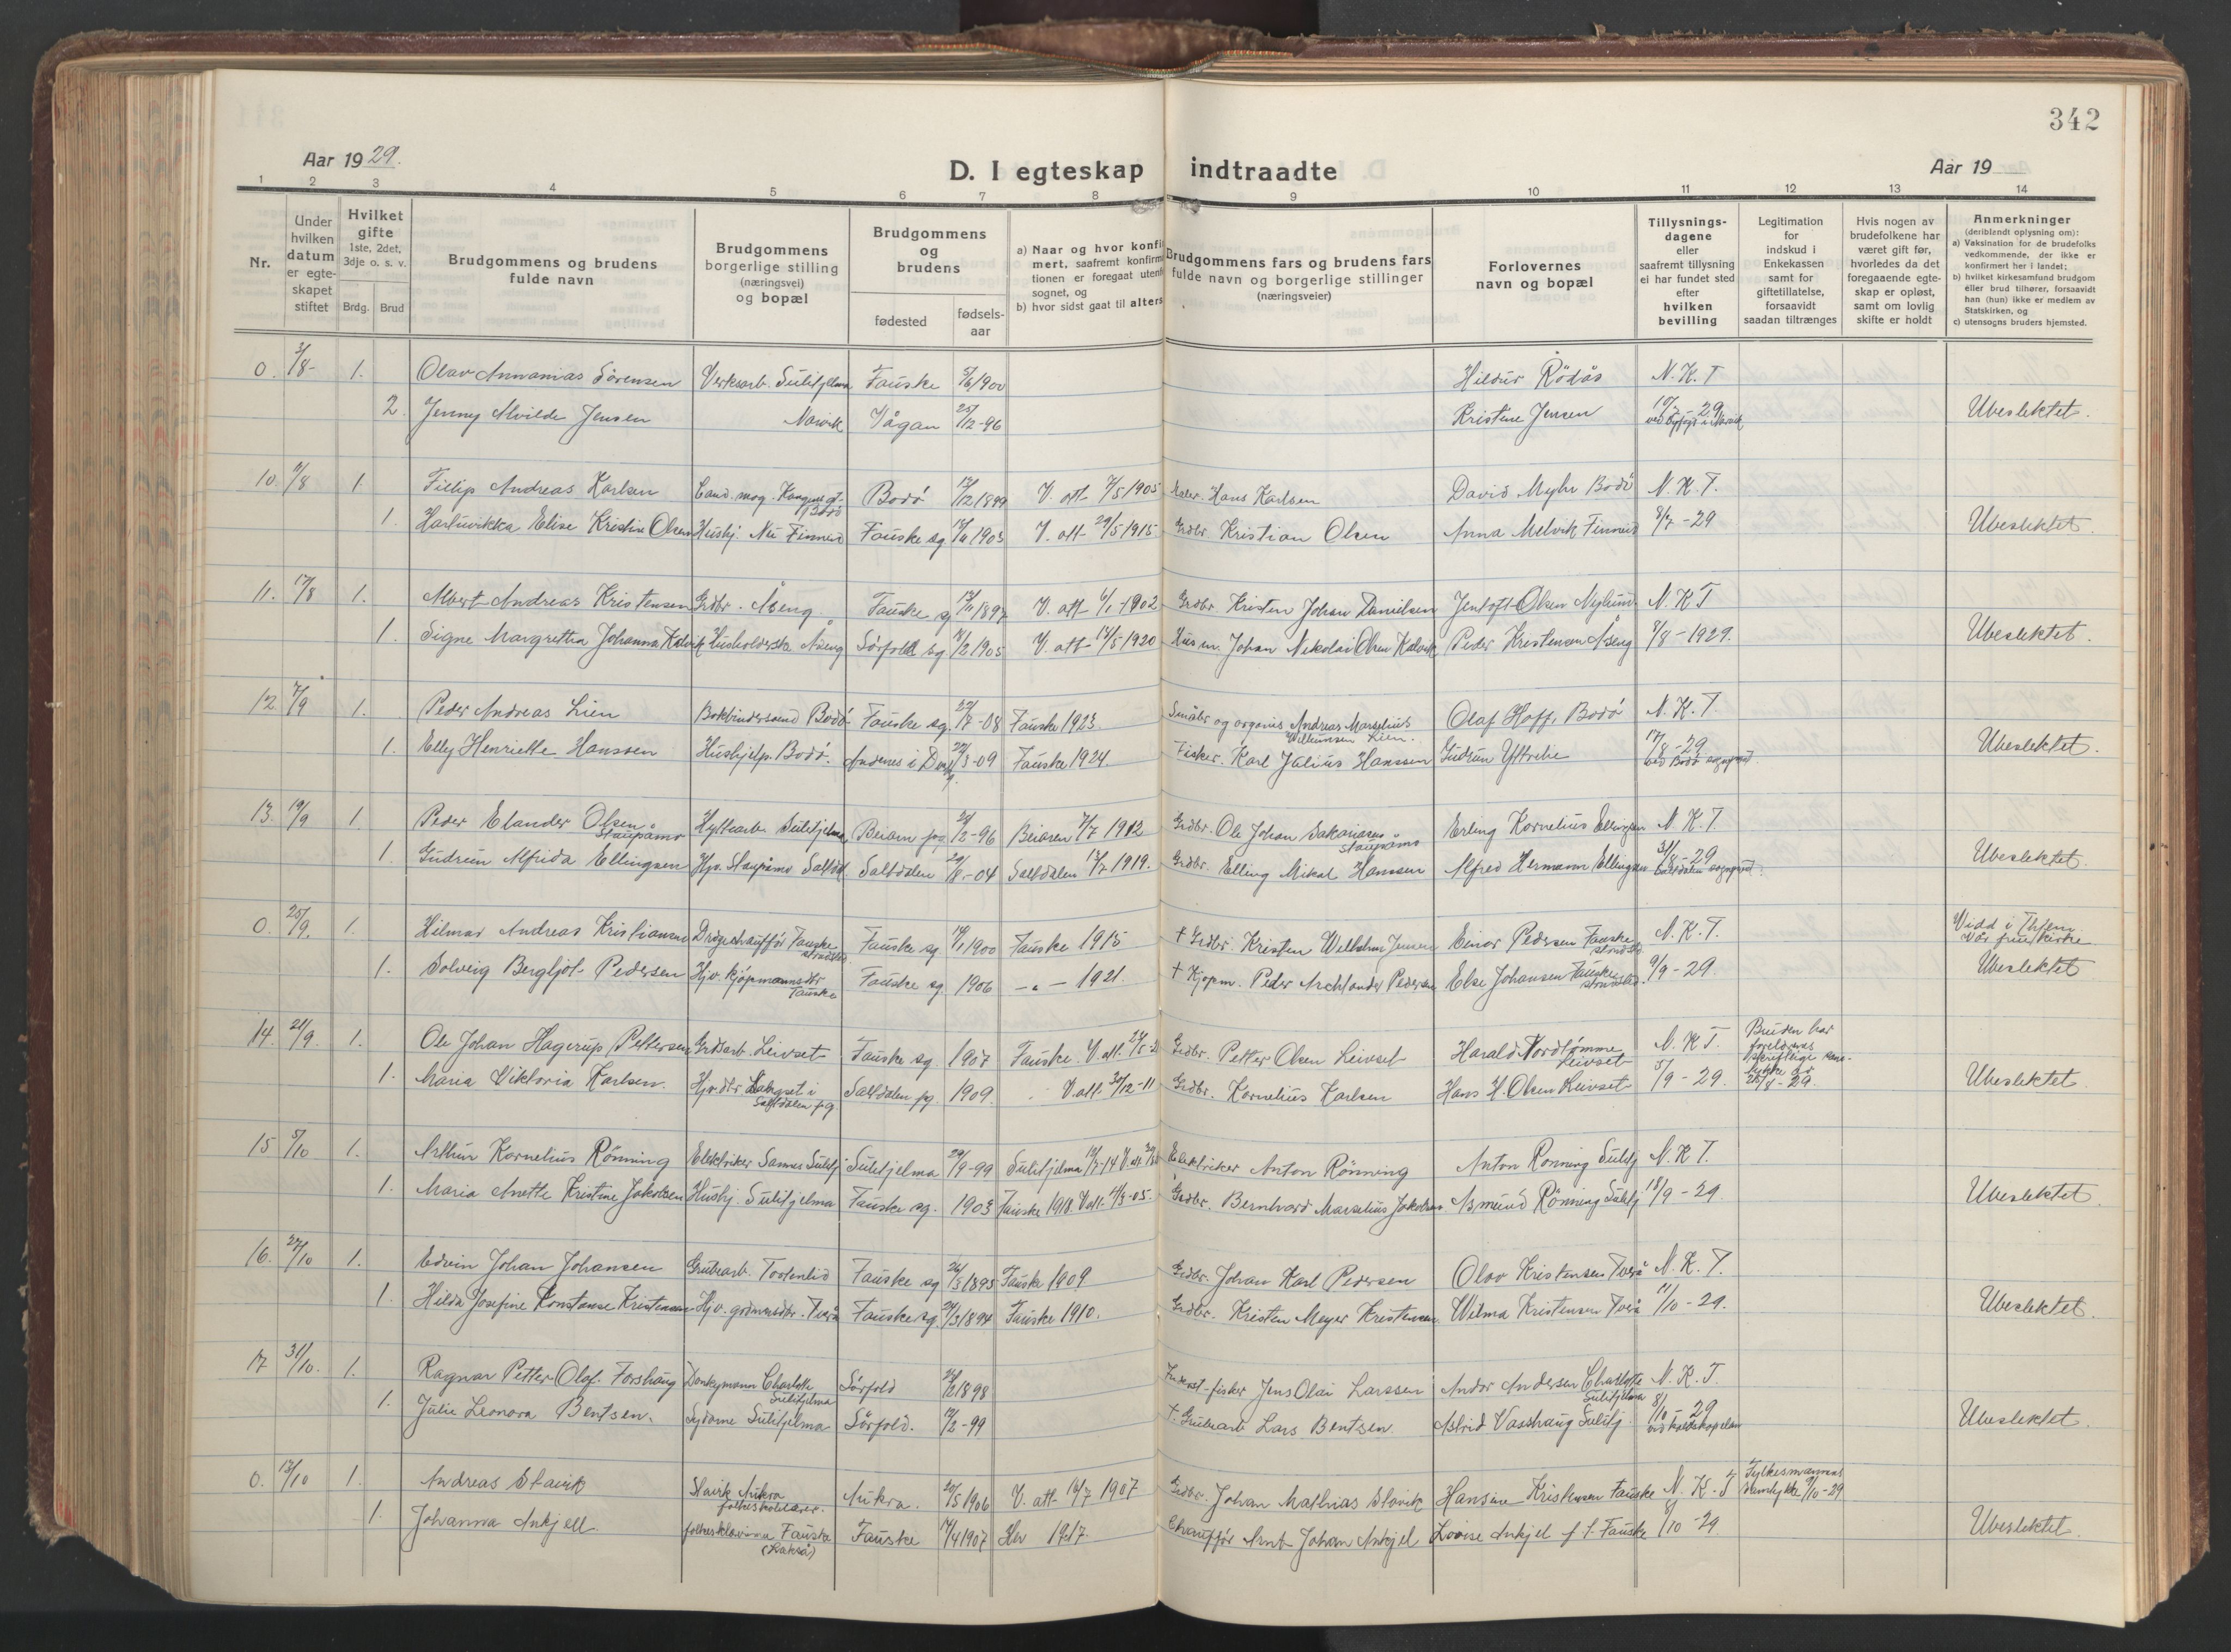 342
Aar 1929.
D. I egteskap indtraadte
Aar 19
1 2 3 4 5 6 7 8 9 10 11 12 13 14
Nr.
Under hvilken datum er egteskapet stiftet
Hvilket gifte
1ste, 2det, 3dje o. s. v.
Brdg. Brud
Brudgommens og brudens fulde navn
Brudgommens borgerlige stilling (næringsvei) og bopæl
Brudgommens og brudens
fødested
fødsels-aar
a) Naar og hvor konfirmert, saafremt konfirmationen er foregaat utenfor sognet, og
b) hvor sidst gaat til alters
Brudgommens fars og brudens fars fulde navn og borgerlige stillinger (næringsveier)
Forlovernes navn og bopæl
Tillysnings-dagene eller saafremt tillysning ei har fundet sted efter hvilken bevilling
Legitimation for indskud i Enkekassen samt for giftetillatelse, forsaavidt saadan tiltrænges
Hvis nogen av brudefolkene har været gift før, hvorledes da det foregaaende egteskap er opløst, samt om lovlig skifte er holdt
Anmerkninger
(deriblandt oplysning om):
a) Vaksination for de brudefolks vedkommende, der ikke er konfirmert her i landet;
b) hvilket kirkesamfund brudgom eller brud tilhører, forsaavidt han (hun) ikke er medlem av Statskirken, og
c) utensogns bruders hjemsted.
0. 3/8- 1. Olav Annanias Sørensen Verksarb. Sulitjelma Fauske 5/6 1900 Hildur Rødås N. K. T
2. Jenny Alvilde Jensen Narvik Vågan 25/12-96 Kristine Jensen 19/7-29 Ubeslektet.
10. 1. Fillip Andreas Karlsen Cand. mag. Bodø Bodø 12/12 1899 V. att 7/5 1905 Hans Karlsen David Myhr Bodø N. K. T.
1. Elise Kristine Olsen Hushj. Finneid Fauske sg. V. att 29/5 1915 Grdbr. Kristian Olsen Anna Melvik Finneid 8/7-29 Ubeslektet.
11. 17/8 1. Albert Andreas Kristensen Grdbr. Åseng Fauske sg 1897 V. att 6/1-1902 Grdbr. Kristen Johan Danielsen Jentoft Olsen Nylund N. K T
1. Signe Margretha Johanna Kalvik Husholderske Åseng Sørfold sg. 1905 V. att 1920 Husm. Johan Nikolai Olsen Kalvik Peder Kristensen Åseng 3/8-1929. Ubeslektet.
12. 7/9 1. Peder Andreas Lien Bokbindersvend Bodø Fauske sg. 22/7-08 Fauske 1923. Småbr og organis Andreas Marselius Willumsen Lien. Olaf Hoff, Bodø N. K. T
1. Elly Henriette Hanssen Hushjelp. Bodø. Andenes i 22/3-09 Fauske 1924. Fisker. Karl Julius Hanssen Gudrun Yttrehe 17/8-29 ved Bodø Ubeslektet.
13. 19/9 1. Peder Elander Olsen Staupåmo Hyttearb. Sulitjelma Beiarn pg. 28/2-96 Beiaren 7/7 1912 Grdbr. Ole Johan Sakariasen Staupåmo Erling Kornelius Ellingsen N. K. T.
1. Gudrun Alfrida Ellingsen Hjv. Staupåmo Saltdal Saltdalen 29/8-04 Saltdalen 1919. Grdbr. Elling Mikal Hanssen Alfred Hermann Ellingsen 31/8-29 Saltdalen Ubeslektet.
0. 25/9. 1. Hilmar Andreas Kristiansen Drosjechauffør Fauske Fauske sg. 1900 Fauske 1915 † Grdbr. Kristen Wilhelm Jensen Einar Pedersen Fauske N. K. T. Vidd i Vår frue kirke
1. Solveig Bergljot Pedersen Hjv. kjøpmannsdtr Fauske Fauske sg. 1906 -„- 1921. † Kjøpm. Peder Archlander Pedersen Else Johansen Fauske 9/9-29. Ubeslektet
14. 21/9. 1. Ole Johan Hagerup Pettersen Grdsarb. Leivset Fauske sg 1907 Fauske. V. att. Grdbr. Petter Olsen Leivset Harald Nordtømme Leivset N. K T. Bruden har foreldrenes skriftlige samtykke av 26/8-29.
1. Maria Viktoria Karlsen. Hjv. dtr i Saltdalen pg. Saltdalen pg 1909. V. att. 30/12-11 Grdbr. Kornelius Karlsen Hans H. Olsen Leivset 5/9-29. Ubeslektet
15 5/10 1. Arthur Kornelius Rønning Elektriker Sulitj. Sulitjelma 29/9-99 Sulitjelma Elektriker Anton Rønning Anton Rønning Sulitj N. K T.
1. Maria Anette Kristine Jakobsen Hushj. Sulitjelma Fauske sg. 1903 Fauske 1918. V. att. Grdbr. Bernhard Marselius Jakobsen Asmund Rønning Sulitj 18/9-29. Ubeslektet
16. 27/10 1. Edvin Johan Johansen Grubearb. Tortenlid Fauske sg 26/5 1895 Fauske 1909 Grdbr. Johan Karl Pedersen Olav Kristensen Tverå N. K. T.
1. Hilda Josefine Konstanse Kristensen Hjv. grdmansdtr. Tverå Fauske sg. 1894 Fauske 1910. Grdbr. Kristen Meyer Kristensen. Wilma Kristensen Tverå 11/10-29. Ubeslektet.
17 31/10. 1. Ragnar Petter Olaf. Forshaug Donkymann Charlotte Sulitjelma Sørfold 1898 fisker Jens Olai Larssen Andor Andersen Charlotte Sulitjelma N. K. T.
1. Julie Leonora Bentsen. Sydame Sulitjelma Sørfold. 12/2-99 †. Grubearb Lars Bentsen. Astrid Vasshaug Sulitj. 8/10-29 Ubeslektet.
0. 13/10 1. Andreas Slavik Slavik Aukra folkeskolelærer. Aukra. 20/5 1906 V. att 14/7 1907 Grdbr. Johan Mathias Slavik Hansine Kristensen Fauske N. K. T Fylkesmannens samtykke 9/10-29
1. Johanna Ankjell. Fauske Fauske 17/4 1907 Her 1917. Chauffør Arnt Johan Ankjel Lovise Ankjel f. f. Fauske 9/10-29 Ubeslektet.